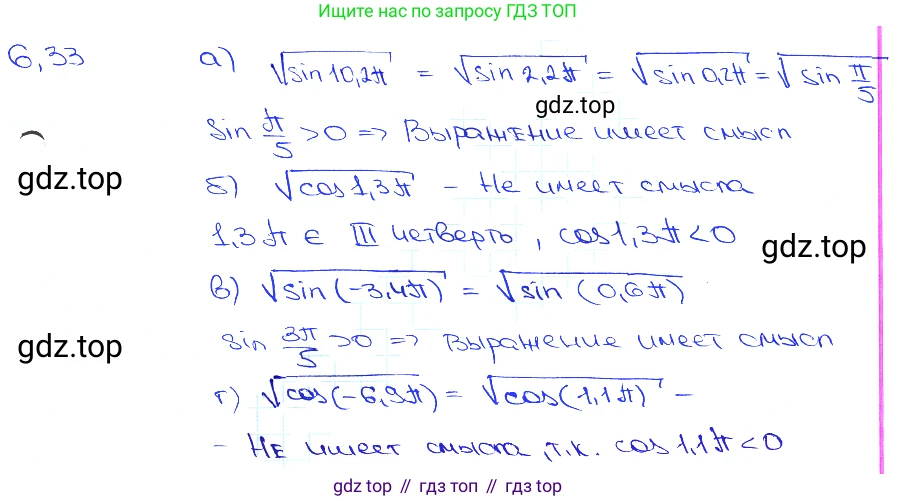 Ищите нас по запросу ГДЗ ТОП
6,33 а) √sin10,2π = √sin2,2π = √sin0,2π = √sin π/5
gdz.top
sin π/5 >0 => Выражение имеет смысл
gdz.top
б) √cos1,3π – Не имеет смысла
1,3π ∈ III четверть, cos1,3π<0
gdz.top
в) √sin(-3,4π) = √sin(0,6π)
sin 3π/5 >0 => Выражение имеет смысл
gdz.top
г) √cos(-6,9π) = √cos(1,1π) –
– Не имеет смысла, т.к. cos1,1π<0
gdz top // гдз топ // gdz top